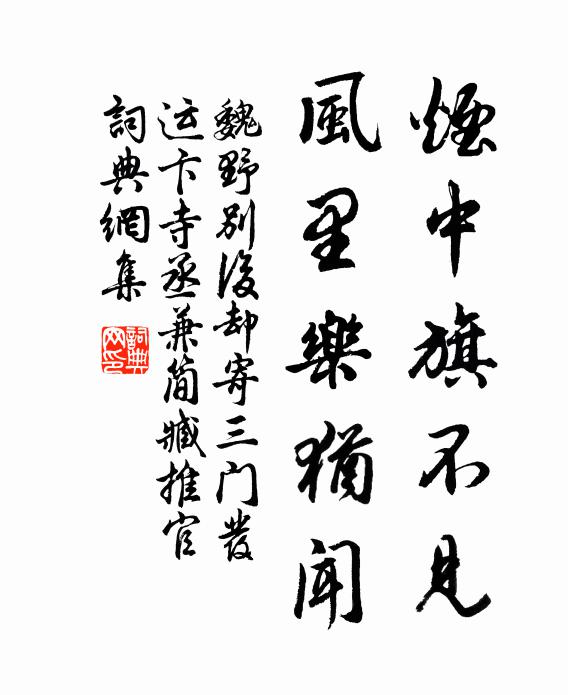 煙中旗不見
風里樂猶聞
魏野別後却寄三门發
运卞寺丞兼简臧推官
詞典網集
詞典
网印